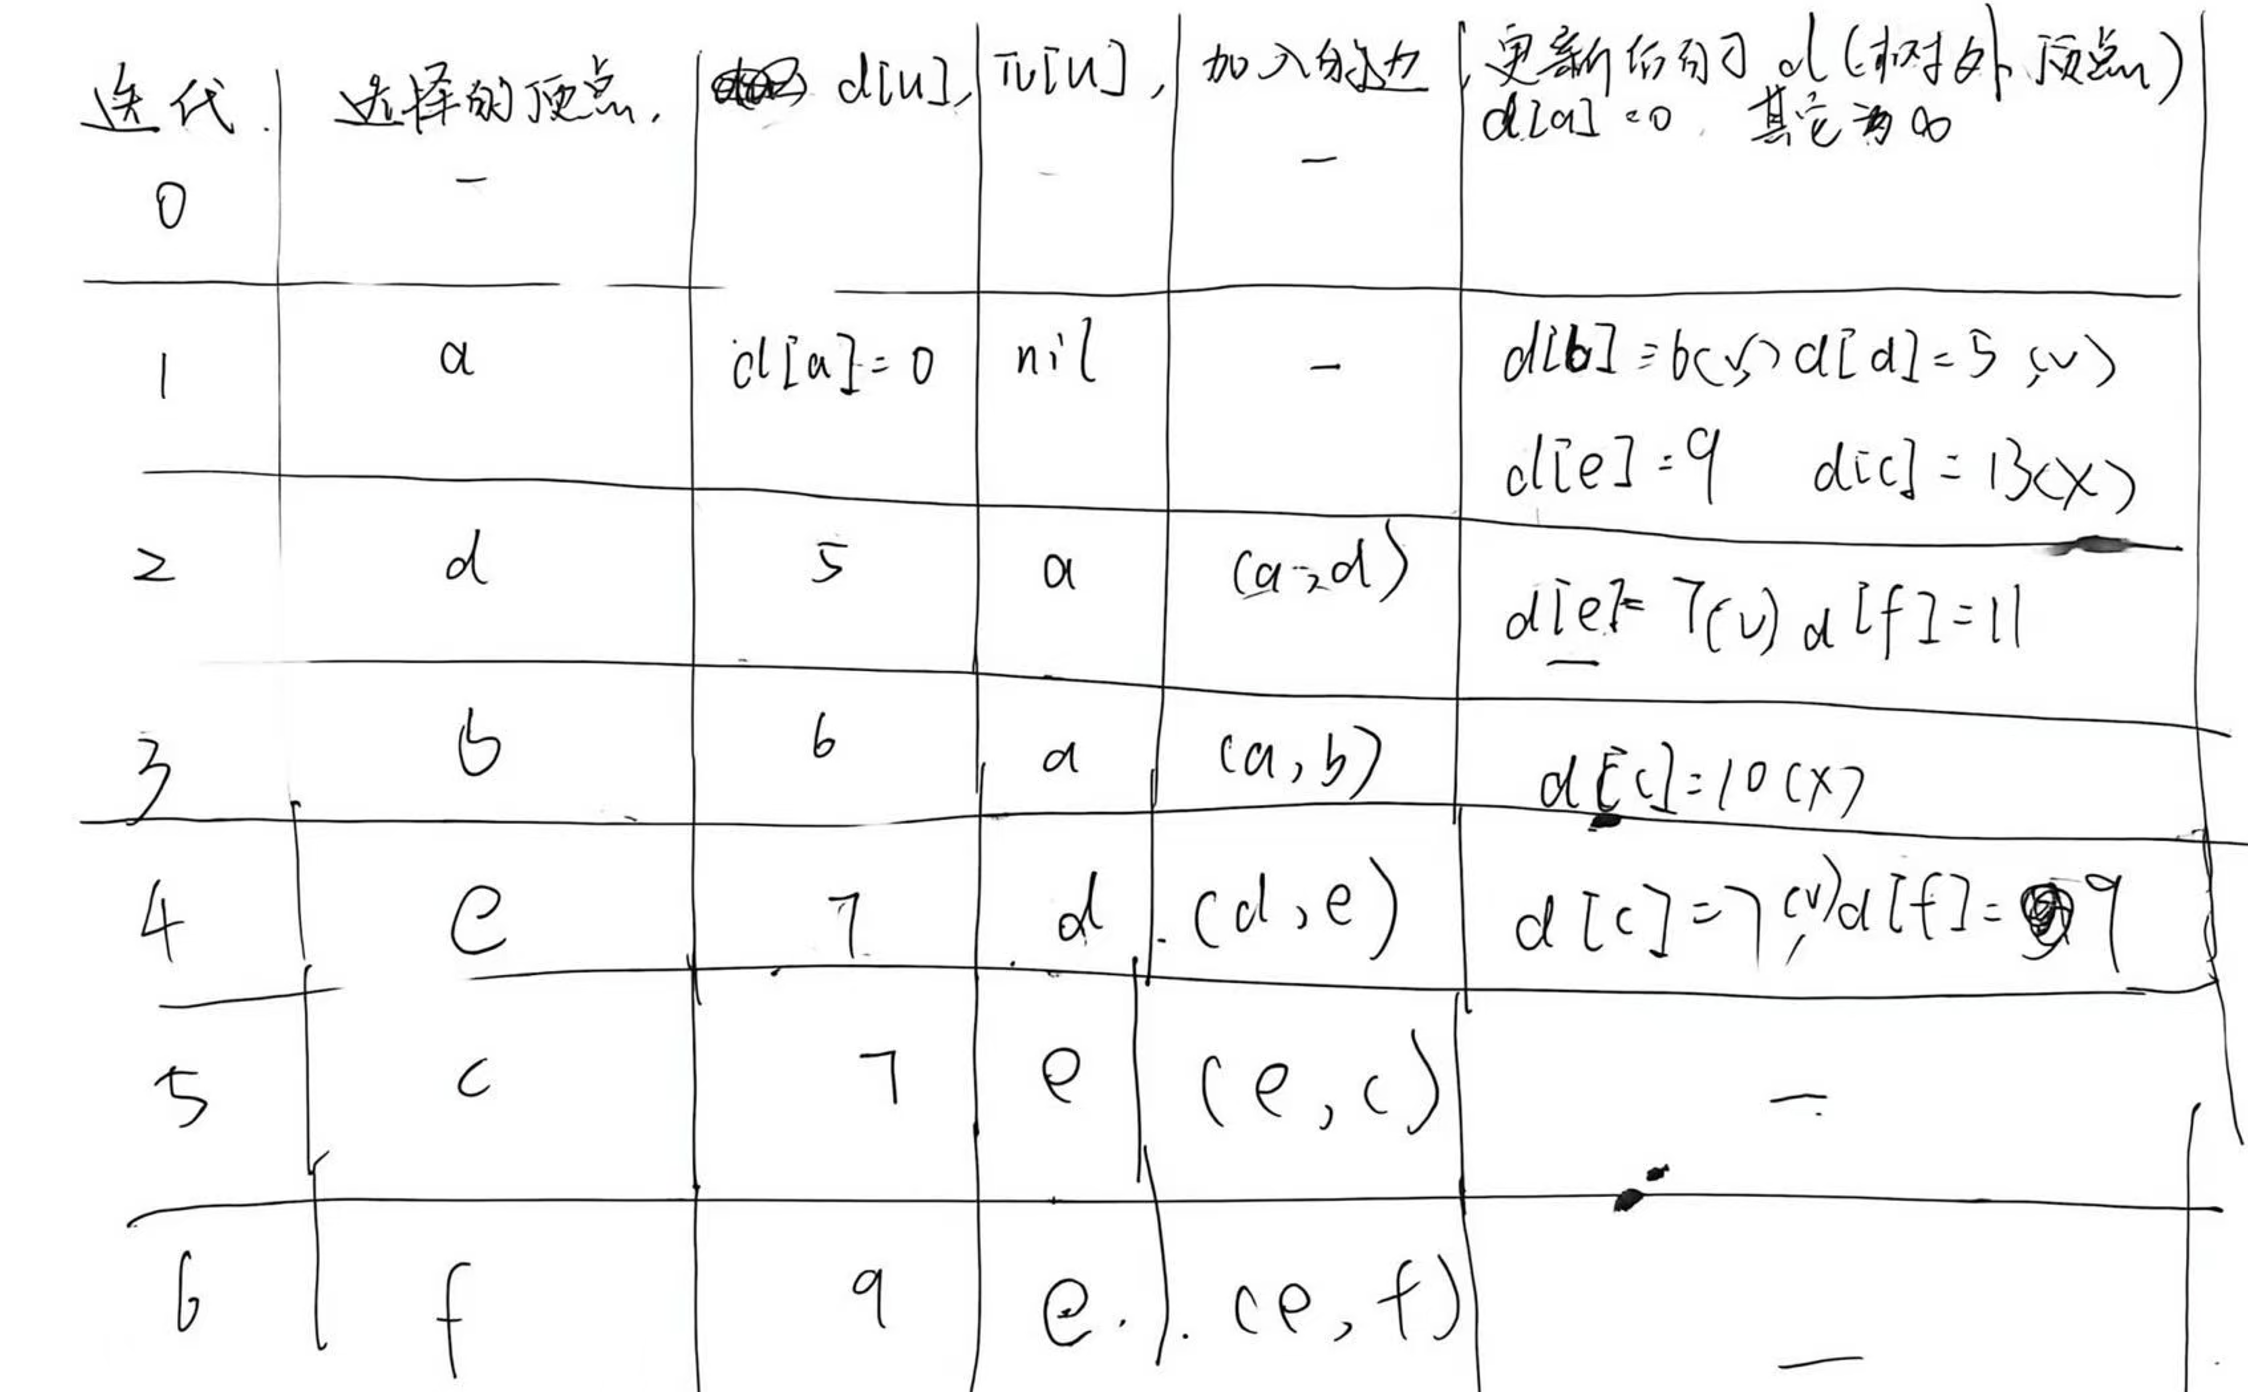 迭代. 选择的顶点, d[u], π[u], 加入的边 更新后的 d (树外顶点)
0 - - - d[a]=0, 其它为∞
1 a d[a]=0 nil - d[b]=6(√) d[d]=5(√)
d[e]=9 d[c]=13(×)
2 d 5 a (a,d) d[e]=7(√) d[f]=11
3 b 6 a (a,b) d[c]=10(×)
4 e 7 d (d,e) d[c]=7(√) d[f]=9
5 c 7 e (e,c) -
6 f 9 e. (e,f) -